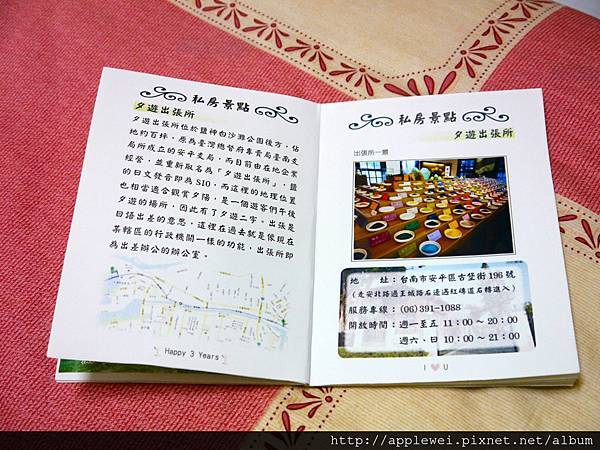 私房景點
夕遊出張所
夕遊出張所位於鹽神白沙灘公園後方,佔
地約百坪,原為臺灣總督府專賣局臺南支
局所成立的安平支局,而目前由在地企業
經營,並重新取名為「夕遊出張所」,鹽
的日文發音即為SIO,而這裡的地理位置
也相當適合觀賞夕陽,是一個遊客們午後
夕遊的場所,因此有了夕遊二字。出張是
日語出差的意思,這裡在過去就是像現在
某轄區的行政機關一樣的功能,出張所即
為出差辦公的辦公室。
Happy 3 Years
私房景點
夕遊出張所
出張所一景
地　　址:台南市安平區古堡街196號
(走安北路過王城路右邊遇紅磚道右轉進入)
服務專線:(06)391-1088
開放時間:週一至五 11:00~20:00
週六、日 10:00~21:00
I ♥ U
http://applewei.pixnet.net/album